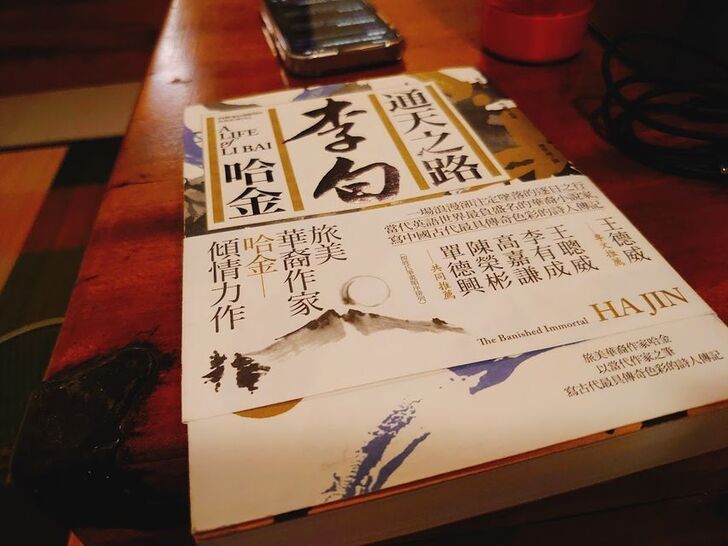 通天之路
李白
A
LIFE
of
LI BAI
哈金
一場浪漫卻註定墜落的逐日之行
當代英語世界最負盛名的華裔小說家
寫中國古代最具傳奇色彩的詩人傳記
王德威
專文推薦
王聰威
李有成
高嘉謙
陳榮彬
單德興
共同推薦
旅美
華裔作家
哈金
傾情力作
The Banished Immortal
HA JIN
旅美華裔作家哈金
以當代作家之筆
寫古代最具傳奇色彩的詩人傳記